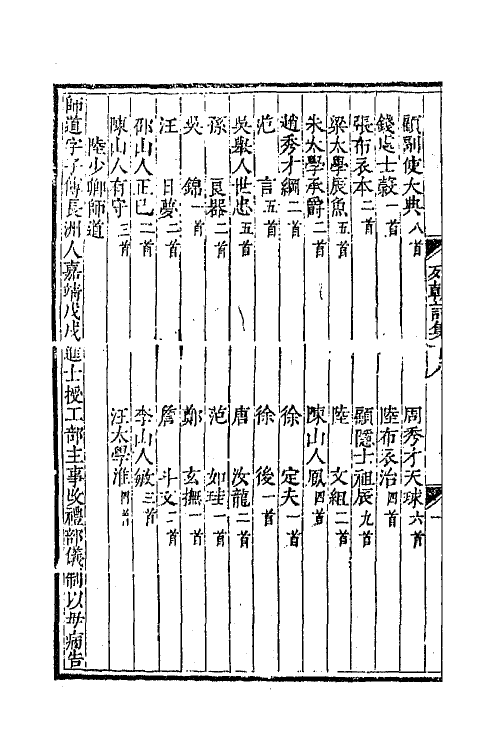 列朝詩集
顧副使大典八首
周秀才天球六首
錢處士穀一首
陸布衣治四首
張布衣本二首
顧隱士祖辰九首
梁太學辰魚五首
陸 文組二首
朱太學承爵二首
陳山人鳳四首
趙秀才綱二首
徐 定夫一首
范 言五首
徐 後一首
吳舉人世忠五首
唐 汝龍二首
孫 良器二首
范 如珪一首
吳 錦一首
鄭 玄撫一首
汪 日夢二首
詹 斗文二首
邵山人正已二首
李山人敏三首
陳山人有守三首
汪太學淮四首
陸少卿師道
師道字子傳長洲人嘉靖戊戌進士授工部主事改禮部儀制以母病告